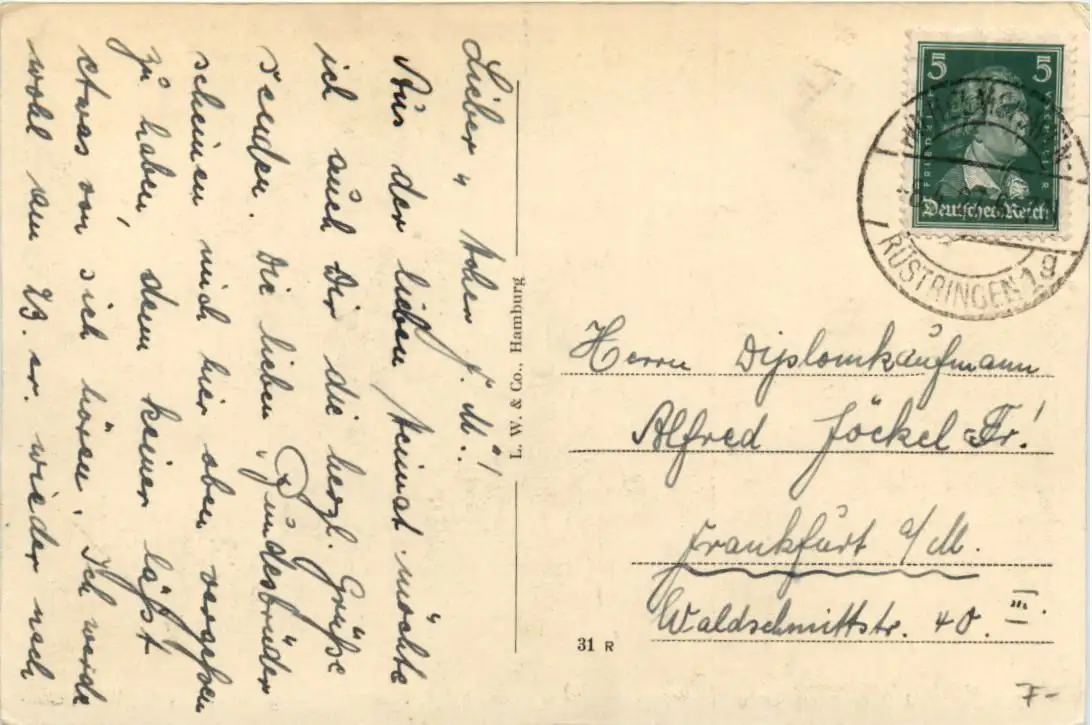 Lieber „ Acher f. M."!
Aus der lieben Heimat möchte
ich auch Dir die herzl. Grüße
senden. Die lieben „Bundesbrüder
scheinen mich hier oben vergeßen
zu haben, denn keiner läßt
etwas von sich hören. Ich werde
wohl am 23. er. wieder nach
L. W. & Co., Hamburg
31 R
5 5
FRIEDRICH V. SCHILLER
Deutsches Reich
WILHELMSHAVEN-
RÜSTRINGEN 1g
Herrn Diplomkaufmann
Alfred Jöckel Fr!
Frankfurt a/M.
Waldschmittstr. 40. III.
7-